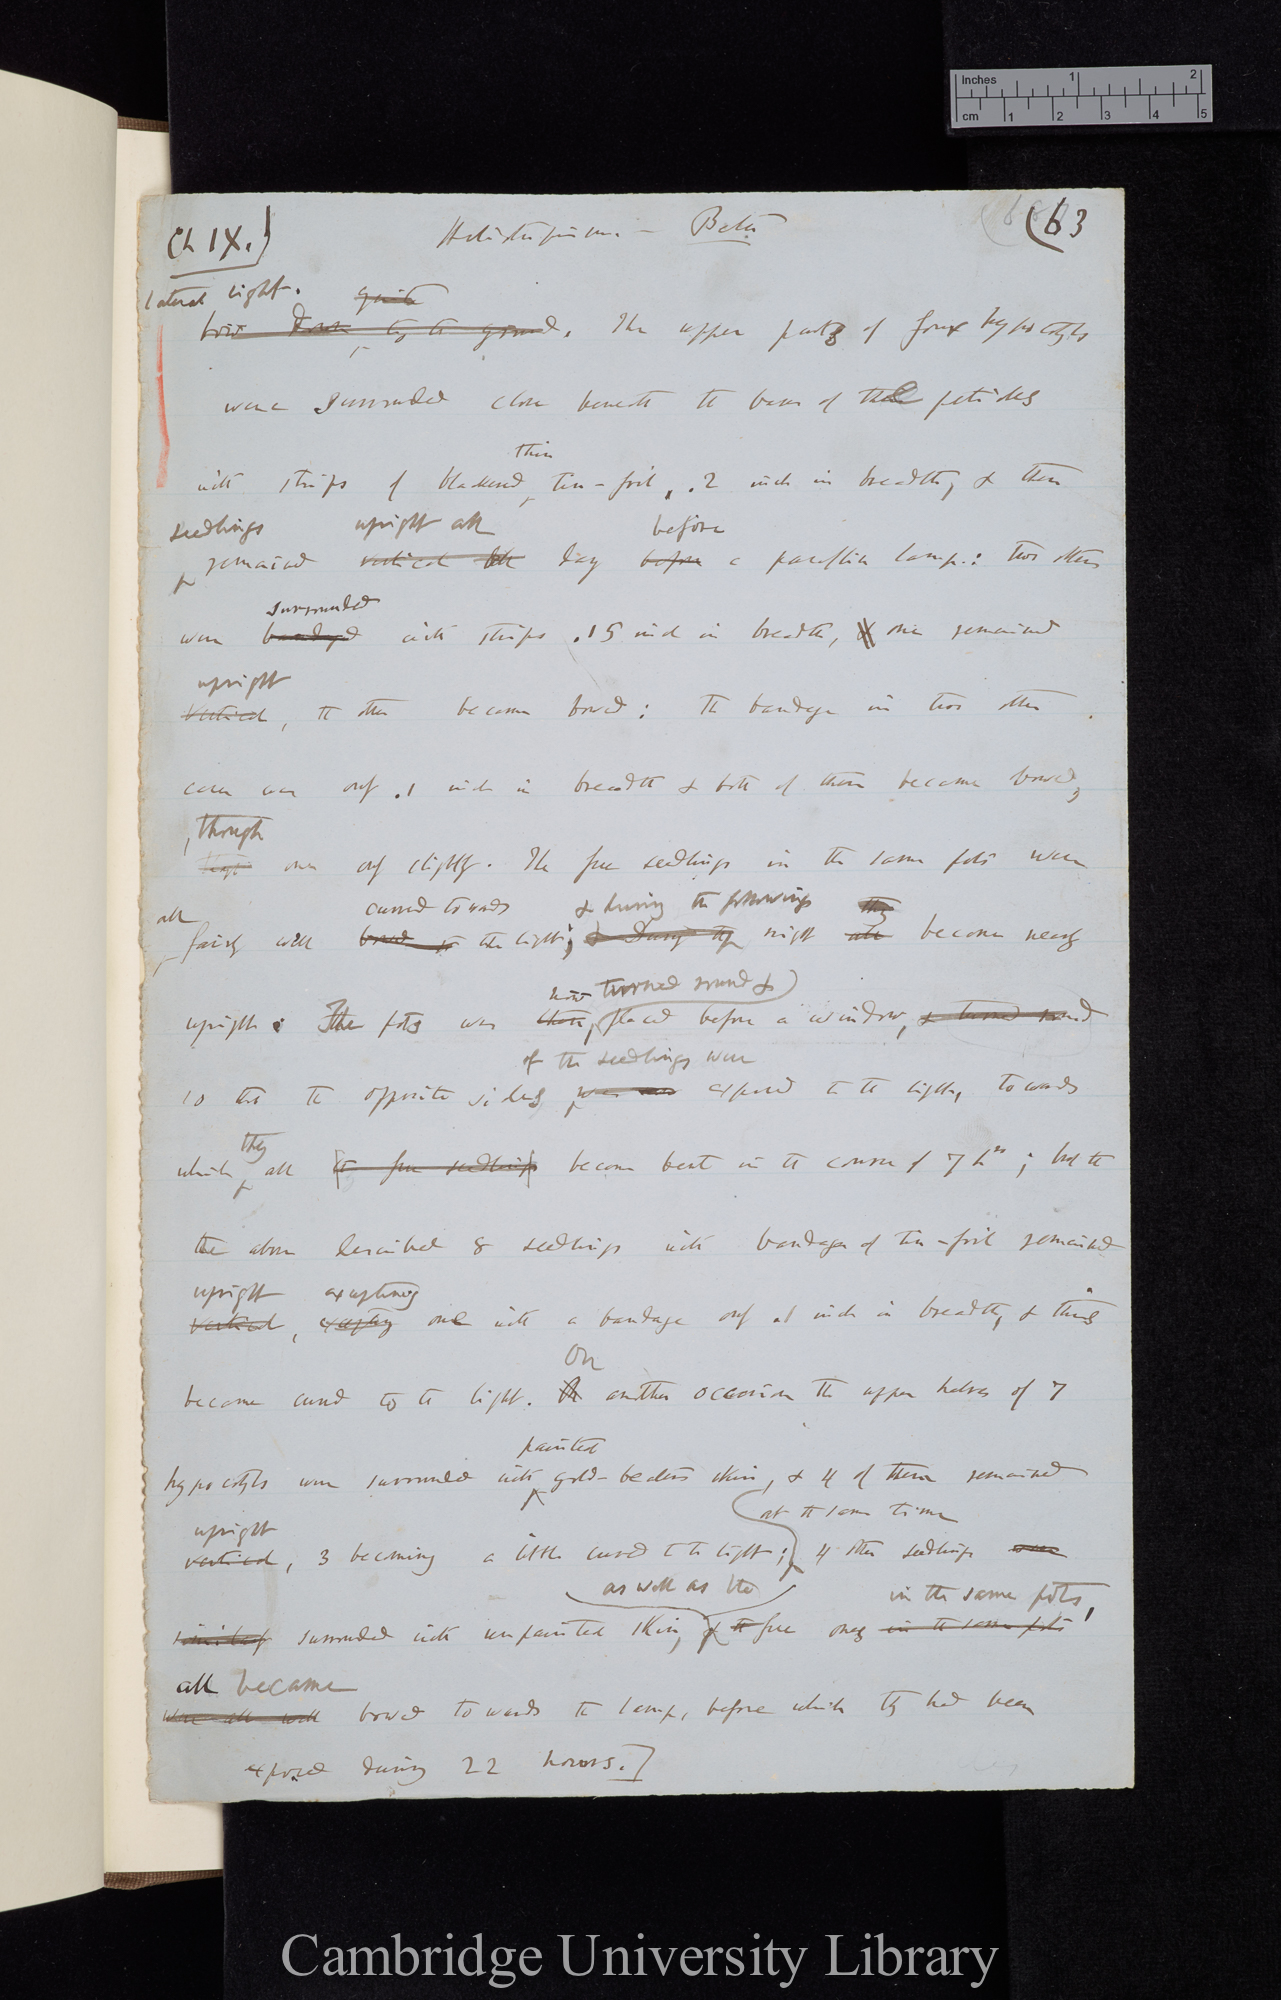 Inches 1 2
cm 1 2 3 4 5
Ch IX.) Heliotropism — Beta (63
lateral light. quite
bow down to the ground. The upper parts of four hypocotyls
were surrounded close beneath the bases of the petioles
thin
with strips of blackened tin-foil, .2 inch in breadth, & these
seedlings upright all before
remained vertical all day before a paraffin lamp: two others
surrounded
were bandaged with strips .15 inch in breadth, & one remained
upright
vertical, the other became bowed: the bandage in two other
cases was only .1 inch in breadth & both of these became bowed,
, though
though one only slightly. The free seedlings in the same pots were
all curved towards & during the following they
fairly well bowed to the light; & during the night all became nearly
now turned round &
upright: The pots were then, placed before a window, & turned round
of the seedlings were
so that the opposite sides were exposed to the light, towards
they
which all the free seedlings became bent in the course of 7 hrs; but the
the above described 8 seedlings with bandages of tin-foil remained
upright excepting
vertical, excepting one with a bandage only .1 inch in breadth, & this
became curved to the light. On
another occasion the upper halves of 7
painted
hypocotyls were surrounded with gold-beaters skin, & 4 of these remained
upright at the same time
vertical, 3 becoming a little curved to the light; 4 other seedlings were
as well as the in the same pots,
similarly surrounded with unpainted skin, & the free ones in the same pots
all became
were all well bowed towards the lamp, before which they had been
exposed during 22 hours.]
Cambridge University Library